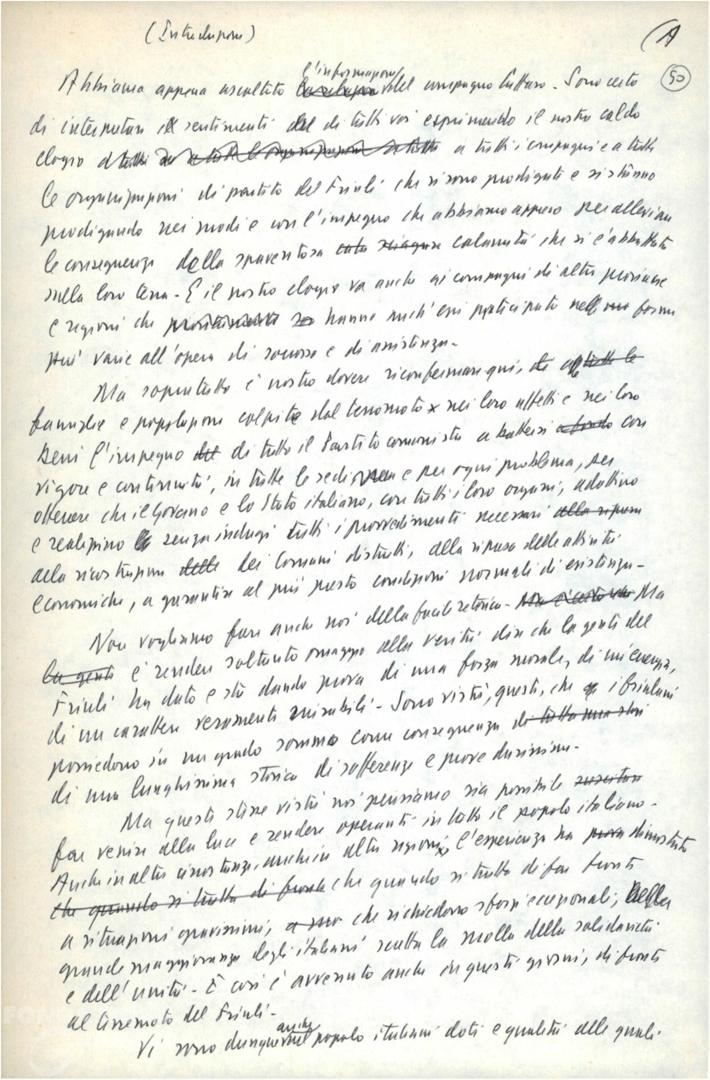 (Introduzione)
A
50
Abbiamo appena ascoltato l'informazione del compagno Cuffaro. Sono certo
di interpretare i sentimenti di tutti voi esprimendo il nostro caldo
elogio a tutti i compagni e a tutte
le organizzazioni di partito del Friuli che si sono prodigate e si stanno
prodigando nei modi e con l'impegno che abbiamo appreso per alleviare
le conseguenze della spaventosa calamità che si è abbattuta
sulla loro terra. E il nostro elogio va anche ai compagni di altre province
e regioni che hanno anch'essi partecipato nelle forme
più varie all'opera di soccorso e di assistenza.
Ma soprattutto è nostro dovere riconfermare qui, alle
famiglie e popolazioni colpite dal terremoto nei loro affetti e nei loro
beni l'impegno di tutto il Partito comunista a battersi con
vigore e continuità, in tutte le sedi e per ogni problema, per
ottenere che il Governo e lo Stato italiano, con tutti i loro organi, adottino
e realizzino senza indugi tutti i provvedimenti necessari alla ripresa
alla ricostruzione dei Comuni distrutti, alla ripresa delle attività
economiche, a garantire al più presto condizioni normali di esistenza.
Non vogliamo fare anche noi della facile retorica. Ma
è rendere soltanto omaggio alla verità dire che la gente del
Friuli ha dato e sta dando prova di una forza morale, di un'energia,
di un carattere veramente mirabili. Sono virtù, queste, che i friulani
possiedono in un grado sommo come conseguenza
di una lunghissima storia di sofferenze e prove durissime.
Ma queste stesse virtù noi pensiamo sia possibile
far venire alla luce e rendere operanti in tutto il popolo italiano.
Anche in altre circostanze, anche in altre regioni, l'esperienza ha dimostrato
che quando si tratta di far fronte
a situazioni gravissime, che richiedono sforzi eccezionali, nella
grande maggioranza degli italiani scatta la molla della solidarietà
e dell'unità. E così è avvenuto anche in questi giorni, di fronte
al terremoto del Friuli.
Vi sono dunque anche nel popolo italiano doti e qualità alle quali